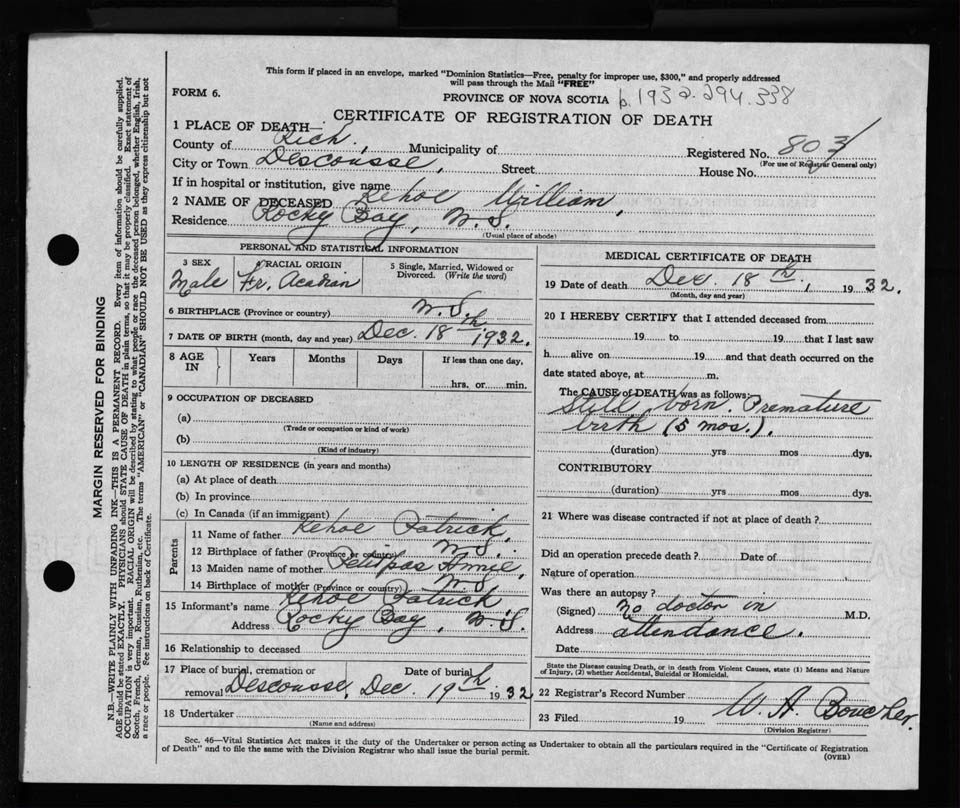 This form if placed in an envelope, marked "Dominion Statistics—Free, penalty for improper use, $300," and properly addressed
will pass through the Mail "FREE"
FORM 6.
PROVINCE OF NOVA SCOTIA
b. 1932. 294.338
CERTIFICATE OF REGISTRATION OF DEATH
1 PLACE OF DEATH—
County of Rich., Municipality of Registered No. 803
(For use of Registrar General only)
City or Town Descousse, Street House No.
If in hospital or institution, give name
2 NAME OF DECEASED Kehoe William,
Residence Rocky Bay, N.S.
(Usual place of abode)
PERSONAL AND STATISTICAL INFORMATION
3 SEX
Male
4 RACIAL ORIGIN
Fr. Acadian
5 Single, Married, Widowed or
Divorced. (Write the word)
6 BIRTHPLACE (Province or country) N.S.
7 DATE OF BIRTH (month, day and year) Dec. 18th 1932.
8 AGE
IN
Years Months Days If less than one day,
hrs. or min.
9 OCCUPATION OF DECEASED
(a)
(Trade or occupation or kind of work)
(b)
(Kind of industry)
10 LENGTH OF RESIDENCE (in years and months)
(a) At place of death
(b) In province
(c) In Canada (if an immigrant)
Parents
11 Name of father Kehoe Patrick,
12 Birthplace of father (Province or country) N.S.
13 Maiden name of mother Petitpas Amie,
14 Birthplace of mother (Province or country) N.S.
15 Informant's name Kehoe Patrick,
Address Rocky Bay, N.S.
16 Relationship to deceased
17 Place of burial, cremation or Date of burial
removal Descousse, Dec. 19th 1932
18 Undertaker
(Name and address)
MEDICAL CERTIFICATE OF DEATH
19 Date of death Dec. 18th, 1932.
(Month, day and year)
20 I HEREBY CERTIFY that I attended deceased from
19 to 19 that I last saw
h alive on 19 and that death occurred on the
date stated above, at m.
The CAUSE of DEATH was as follows:
Still born. Premature
birth (5 mos.).
(duration) yrs mos dys.
CONTRIBUTORY
(duration) yrs mos dys.
21 Where was disease contracted if not at place of death?
Did an operation precede death? Date of
Nature of operation
Was there an autopsy?
(Signed) No doctor in M.D.
Address attendance.
Date
State the Disease causing Death, or in death from Violent Causes, state (1) Means and Nature
of Injury, (2) whether Accidental, Suicidal or Homicidal.
22 Registrar's Record Number
23 Filed 19 W. A. Boucher.
(Division Registrar)
Sec. 46—Vital Statistics Act makes it the duty of the Undertaker or person acting as Undertaker to obtain all the particulars required in the "Certificate of Registration
of Death" and to file the same with the Division Registrar who shall issue the burial permit.
(OVER)
MARGIN RESERVED FOR BINDING
N.B.—WRITE PLAINLY WITH UNFADING INK—THIS IS A PERMANENT RECORD. Every item of information should be carefully supplied.
AGE should be stated EXACTLY. PHYSICIANS should STATE CAUSE OF DEATH in plain terms, so that it may be properly classified. Exact statement of
OCCUPATION is very important. RACIAL ORIGIN will be described by stating to what people or race the deceased person belonged, whether English, Irish,
Scotch, French, German, Russian, Ruthenian, etc. The terms "AMERICAN" or "CANADIAN" SHOULD NOT BE USED as they express citizenship but not
a race or people. See instructions on back of Certificate.